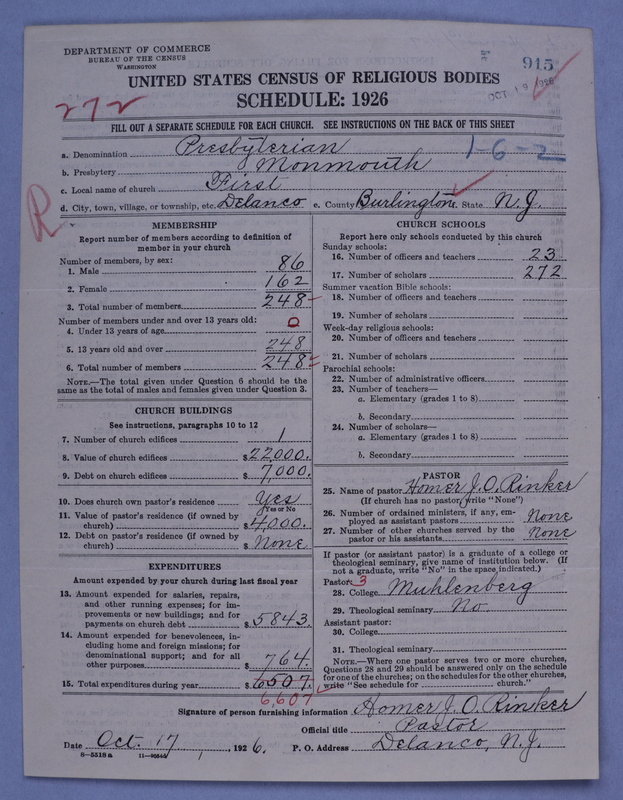 DEPARTMENT OF COMMERCE
BUREAU OF THE CENSUS
WASHINGTON
915
OCT 19 1926
UNITED STATES CENSUS OF RELIGIOUS BODIES
SCHEDULE: 1926
272
FILL OUT A SEPARATE SCHEDULE FOR EACH CHURCH. SEE INSTRUCTIONS ON THE BACK OF THIS SHEET
a. Denomination Presbyterian
1-6-2
b. Presbytery Monmouth
c. Local name of church First
d. City, town, village, or township, etc. Delanco e. County Burlington. State N.J.
R
MEMBERSHIP
Report number of members according to definition of
member in your church
Number of members, by sex:
1. Male 86
2. Female 162
3. Total number of members 248
Number of members under and over 13 years old:
4. Under 13 years of age 0
5. 13 years old and over 248
6. Total number of members 248
NOTE.—The total given under Question 6 should be the
same as the total of males and females given under Question 3.
CHURCH BUILDINGS
See instructions, paragraphs 10 to 12
7. Number of church edifices 1
8. Value of church edifices $22,000.
9. Debt on church edifices $7,000.
10. Does church own pastor's residence Yes
Yes or No
11. Value of pastor's residence (if owned by
church) $4,000.
12. Debt on pastor's residence (if owned by
church) $None
EXPENDITURES
Amount expended by your church during last fiscal year
13. Amount expended for salaries, repairs,
and other running expenses; for im-
provements or new buildings; and for
payments on church debt $5843.
14. Amount expended for benevolences, in-
cluding home and foreign missions; for
denominational support; and for all
other purposes $764.
15. Total expenditures during year $6507.
6,607
CHURCH SCHOOLS
Report here only schools conducted by this church
Sunday schools:
16. Number of officers and teachers 23
17. Number of scholars 272
Summer vacation Bible schools:
18. Number of officers and teachers
19. Number of scholars
Week-day religious schools:
20. Number of officers and teachers
21. Number of scholars
Parochial schools:
22. Number of administrative officers
23. Number of teachers—
a. Elementary (grades 1 to 8)
b. Secondary
24. Number of scholars—
a. Elementary (grades 1 to 8)
b. Secondary
PASTOR
25. Name of pastor Homer J. O. Rinker
(If church has no pastor, write "None")
26. Number of ordained ministers, if any, em-
ployed as assistant pastors None
27. Number of other churches served by the
pastor or his assistants None
If pastor (or assistant pastor) is a graduate of a college or
theological seminary, give name of institution below. (If
not a graduate, write "No" in the space indicated.)
Pastor: 3
28. College Muhlenberg
29. Theological seminary No
Assistant pastor:
30. College
31. Theological seminary
NOTE.—Where one pastor serves two or more churches,
Questions 28 and 29 should be answered only on the schedule
for one of the churches; on the schedules for the other churches,
write "See schedule for church."
Signature of person furnishing information Homer J. O. Rinker
Official title Pastor
Date Oct. 17, 1926. P. O. Address Delanco, N.J.